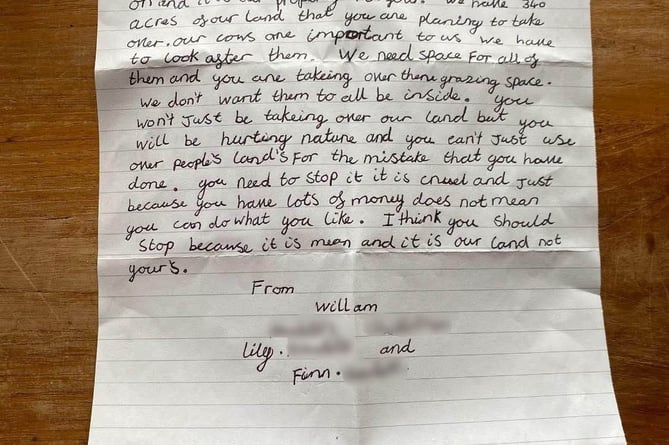 and it is our property not your. We have 340
acres of our land that you are planing to take
over. our cows are important to us we have
to look after them. We need space for all of
them and you are takeing over there grazing space.
we don't want them to all be inside. you
won't just be takeing over our land but you
will be hurting nature and you can't just use
over people's land's for the mistake that you have
done. you need to stop it it is cruel and just
because you have lots of money does not mean
you can do what you like. I think you should
stop because it is mean and it is our land not
your's.
From
Willam
lily.
and
Finn.